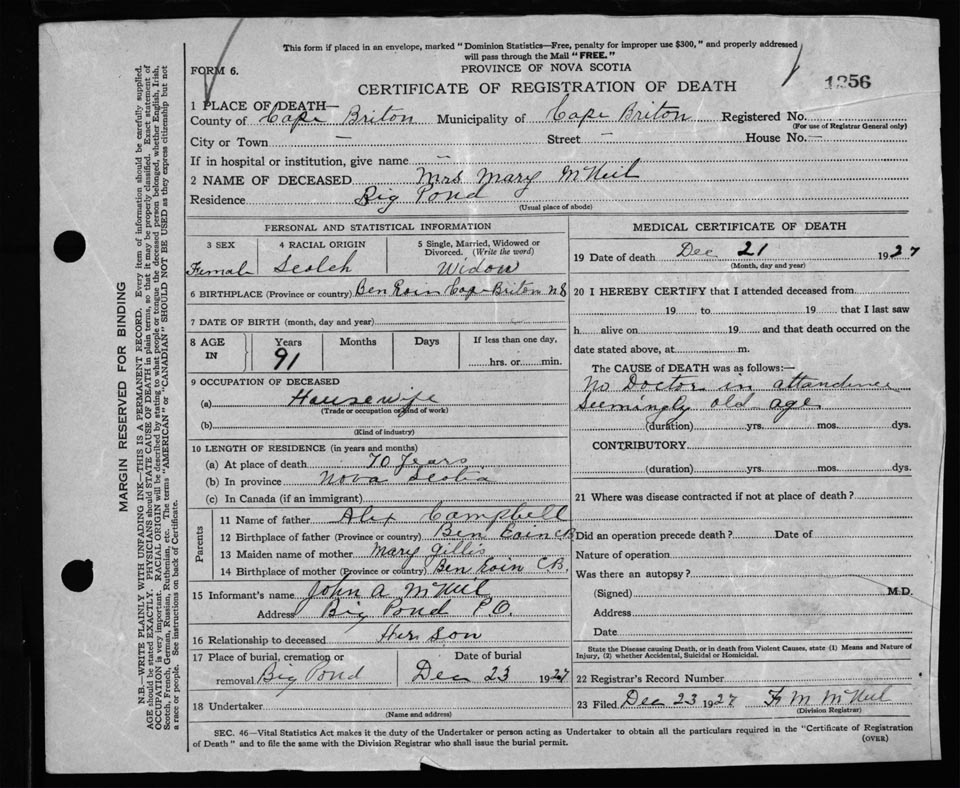 This form if placed in an envelope, marked "Dominion Statistics—Free, penalty for improper use $300," and properly addressed
will pass through the Mail "FREE."
FORM 6.
PROVINCE OF NOVA SCOTIA
1356
CERTIFICATE OF REGISTRATION OF DEATH
1 PLACE OF DEATH—
County of Cape Briton Municipality of Cape Briton Registered No.
(For use of Registrar General only)
City or Town — Street — House No. —
If in hospital or institution, give name —
2 NAME OF DECEASED Mrs Mary McNeil
Residence Big Pond
(Usual place of abode)
PERSONAL AND STATISTICAL INFORMATION
3 SEX 4 RACIAL ORIGIN 5 Single, Married, Widowed or
Divorced. (Write the word)
Female Scotch Widow
6 BIRTHPLACE (Province or country) Ben Eoin Cape Briton N S
7 DATE OF BIRTH (month, day and year)
8 AGE IN Years Months Days If less than one day,
91 hrs. or min.
9 OCCUPATION OF DECEASED
(a) Housewife
(Trade or occupation or kind of work)
(b)
(Kind of industry)
10 LENGTH OF RESIDENCE (in years and months)
(a) At place of death 70 years
(b) In province Nova Scotia
(c) In Canada (if an immigrant)
Parents
11 Name of father Alex Campbell
12 Birthplace of father (Province or country) Ben Eoin CB
13 Maiden name of mother Mary Gillis
14 Birthplace of mother (Province or country) Ben Eoin C.B.
15 Informant's name John A McNeil
Address Big Pond P.O.
16 Relationship to deceased Her Son
17 Place of burial, cremation or Date of burial
removal Big Pond Dec 23 1927
18 Undertaker
(Name and address)
MEDICAL CERTIFICATE OF DEATH
19 Date of death Dec 21 1927
(Month, day and year)
20 I HEREBY CERTIFY that I attended deceased from
19 to 19 that I last saw
h alive on 19 and that death occurred on the
date stated above, at m.
The CAUSE of DEATH was as follows:—
No Doctor in attendence
Seemingly old age
(duration) yrs. mos. dys.
CONTRIBUTORY
(duration) yrs. mos. dys.
21 Where was disease contracted if not at place of death?
Did an operation precede death? Date of
Nature of operation
Was there an autopsy?
(Signed) M.D.
Address
Date
State the Disease causing Death, or in death from Violent Causes, state (1) Means and Nature of
Injury, (2) whether Accidental, Suicidal or Homicidal.
22 Registrar's Record Number
23 Filed Dec 23 1927 McNeil
(Division Registrar)
SEC. 46—Vital Statistics Act makes it the duty of the Undertaker or person acting as Undertaker to obtain all the particulars required in the "Certificate of Registration
of Death" and to file the same with the Division Registrar who shall issue the burial permit.
(OVER)
MARGIN RESERVED FOR BINDING
N.B.—WRITE PLAINLY WITH UNFADING INK—THIS IS A PERMANENT RECORD. Every item of information should be carefully supplied.
AGE should be stated EXACTLY. PHYSICIANS should STATE CAUSE OF DEATH in plain terms, so that it may be properly classified. Exact statement of
OCCUPATION is very important. RACIAL ORIGIN will be described by stating to what people or tongue the deceased person belonged, whether English, Irish,
Scotch, French, German, Russian, Ruthenian, etc. The terms "AMERICAN" or "CANADIAN" SHOULD NOT BE USED as they express citizenship but not
a race or people. See instructions on back of Certificate.